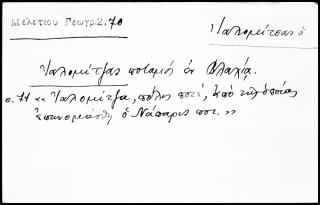 Μελετίου Γεωγρ. 2, 70
Ἰαλομίτσας ὁ
Ἰαλομίτζας ποταμὸς ἐν Βλαχίᾳ.
σ. 71 «Ἰαλομίτζα, πόλις ποτέ, ἀπὸ τῆς ὁποίας
ἐπωνομάσθη ὁ Νάπαρις ποτ.»